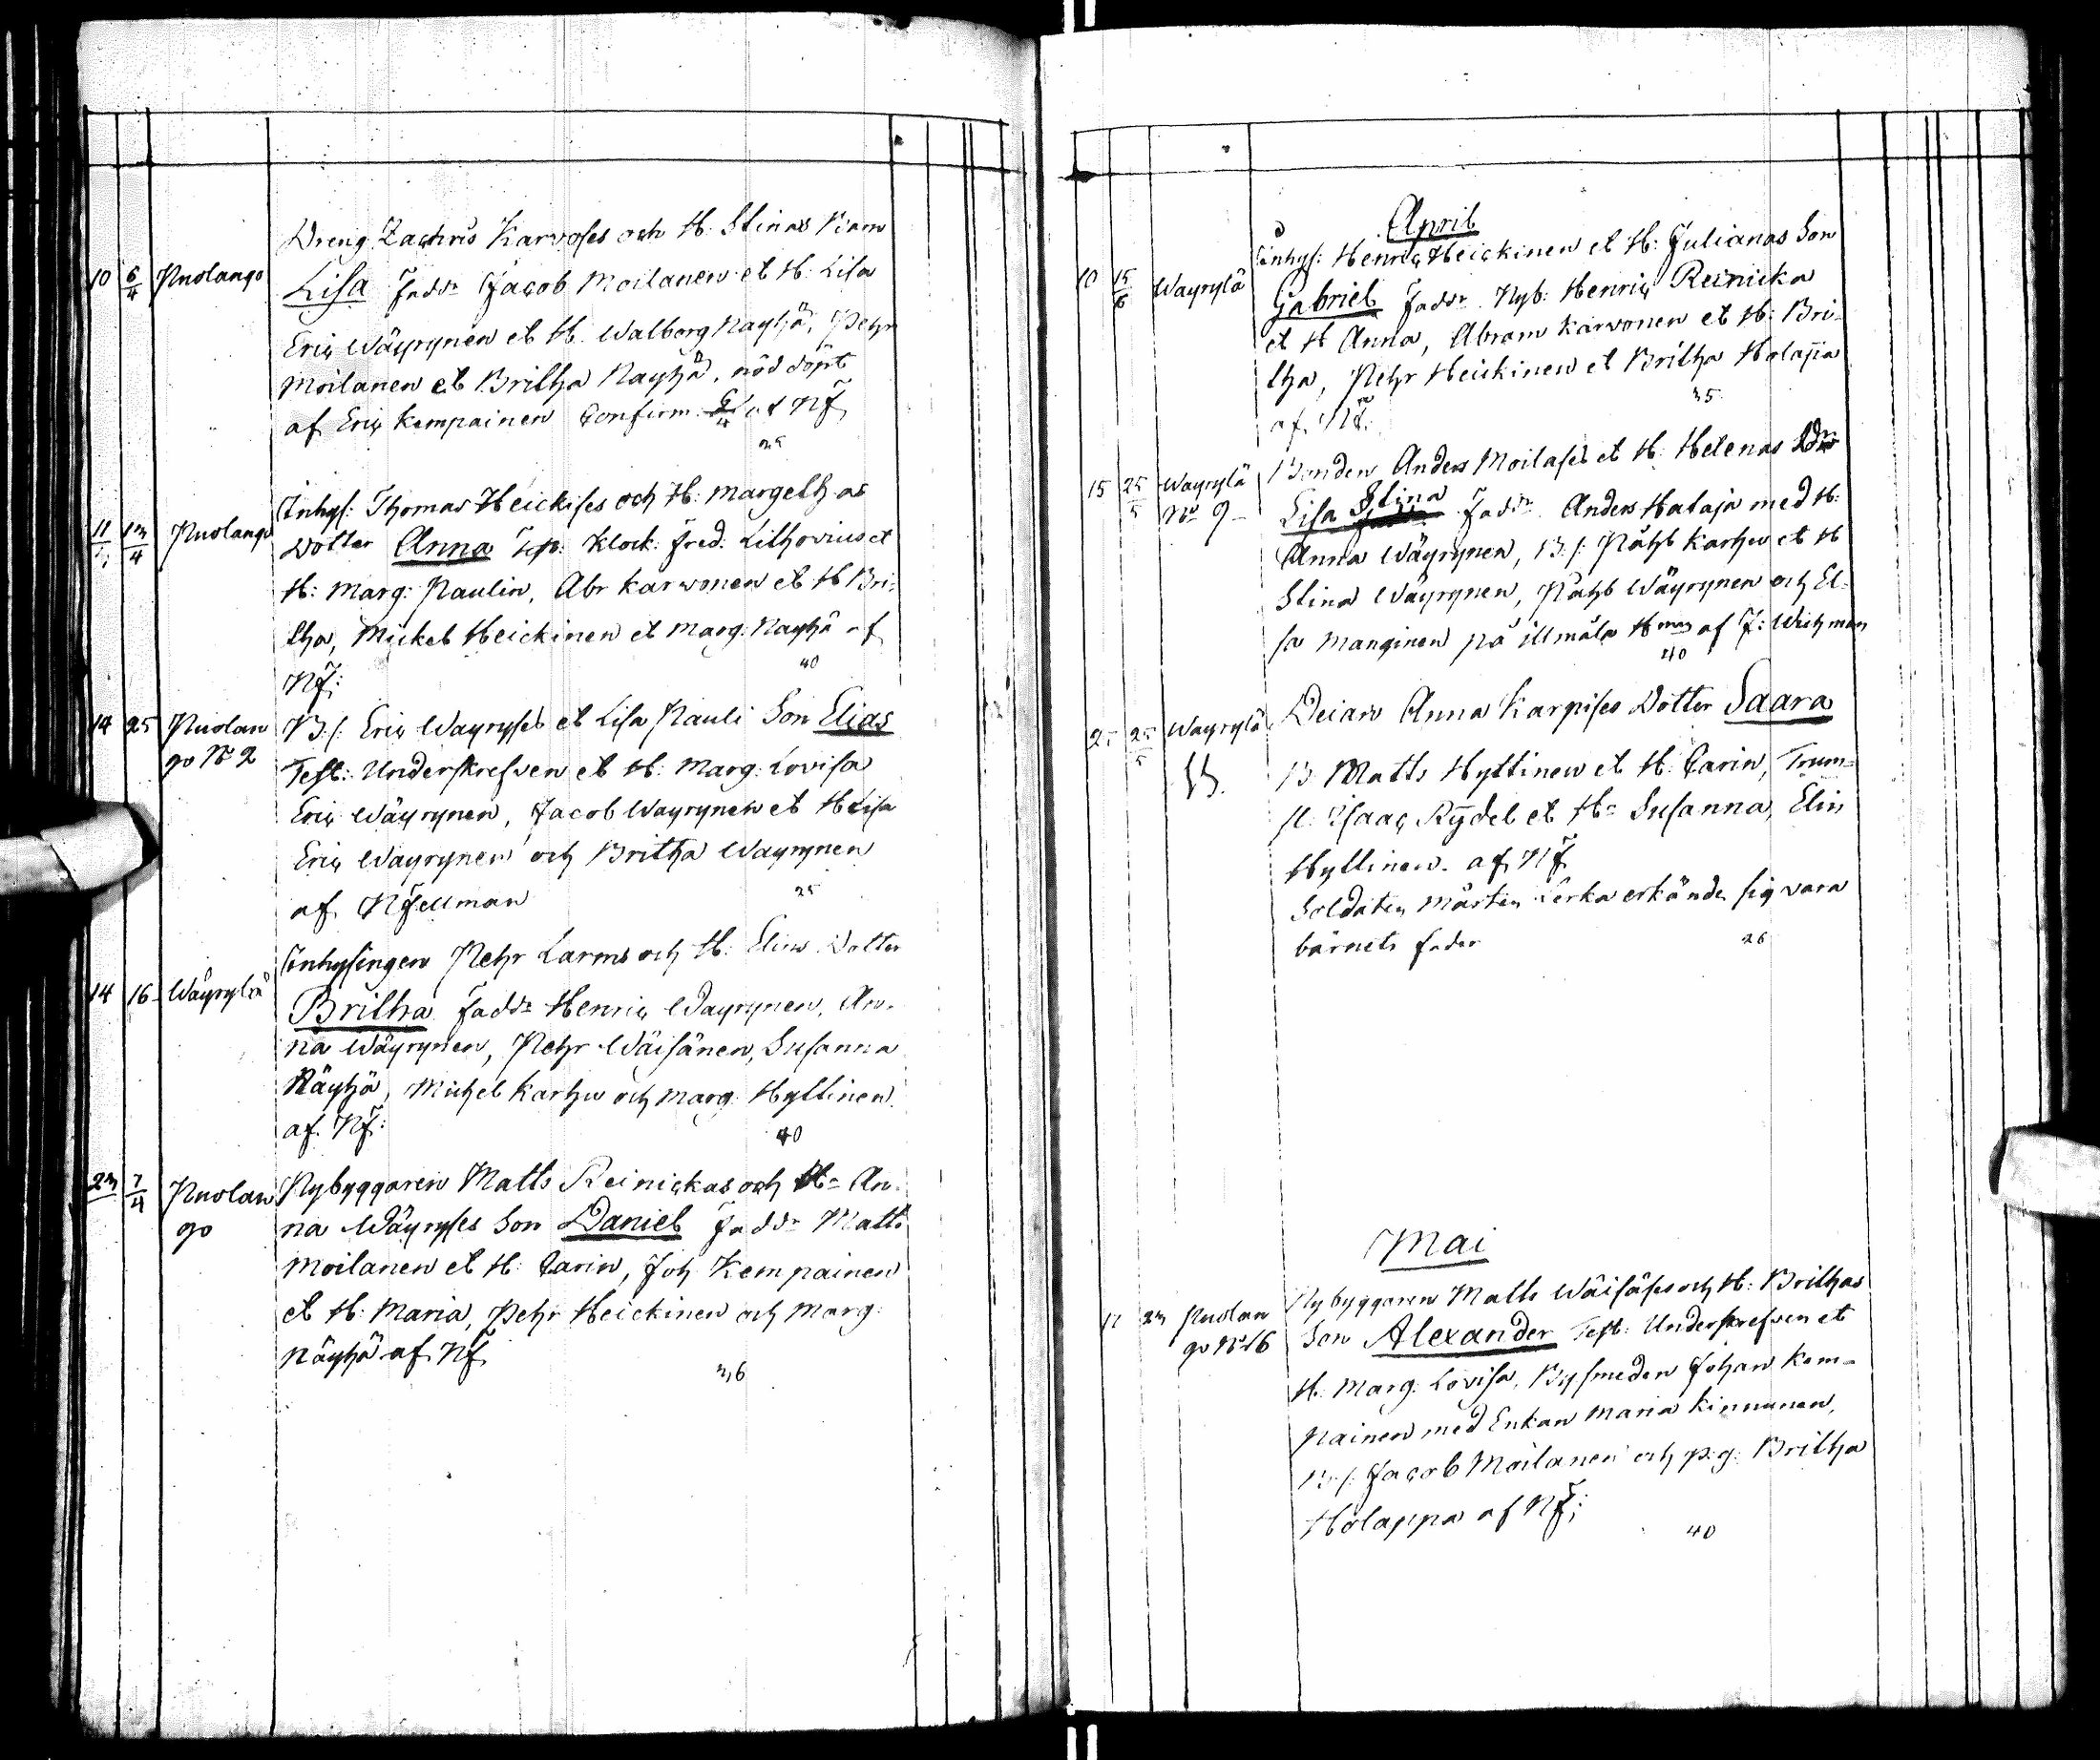 Dreng Zachris Karvoses och H: Stinas Barn
10 6/4 Puolango Lisa Faddr Jacob Moilanen et H. Lisa
Eric Wäyrynen et H. Walborg Näyhä, Pehr
Moilanen et Britha Näyhä, nöd döpt
af Eric Kempainen Confirm. 6/4 af NF
25
Inhys: Thomas Heickises och H: Margeth as
11 Puolango Dotter Anna Test: Klock: Fred: Lithovius et
H: Marg: Paulin, Abr Karwonen et H Bri-
tha, Mickel Heickinen et Marg: Näyhä af
NF: 40
14 25 Puolan B.s. Eric Wäyryses et Lisa Pauli Son Elias
go No 2 Test: Underskrefven et H: Marg: Lovisa
Eric Wäyrynen, Jacob Wäyrynen et H Lisa
Eric Wäyrynen och Britha Wäyrynen
af NFellman 25
Inhysingen Pehr Larms och H: Elins Dotter
14 16 Wäyrylä Britha Faddr Henric Wäyrynen, An-
na Wäyrynen, Pehr Wäisänen, Susanna
Näyhä, Michel Karhu och Marg: Hyttinen
af NF: 40
Puolan Nybyggaren Matts Reinickas och H: An-
go na Wäyryses Son Daniel Faddr Matts
Moilanen et H: Carin, Joh Kempainen
et H: Maria, Pehr Heickinen och Marg:
Näyhä af NF
36
April
Inhys: Henric Heickinen et H: Julianas Son
10 Wäyrylä Gabriel Faddr Nyb: Henric Reinicka
et H Anna, Abram Karwonen et H: Bri-
tha, Pehr Heickinen et Britha Holappa
af NF. 35
15 25/5 Wäyrylä Bonden Anders Moilases et H: Helenas Dr
No 9 Lisa Stina Faddr Anders Hataja med H:
Anna Wäyrynen, B.s: Påhl Karhu et H
Stina Wäyrynen, Påhl Wäyrynen och El-
sa Manginen på illmåla Hman af J: Wichman
40
25 25/5 Wäyrylä Deian Anna Karpises Dotter Saara
B Matts Hyttinen et H: Carin, Trum-
sl. Isaac Rydel et H: Susanna, Elin
Hyttinen. af NF
Soldaten Mårten Lerka erkände sig vara
barnets fader 26
Mai
Nybyggaren Matts Wäisäses och H: Brithas
Puolan Son Alexander Test: Underskrefven et
go No 16 H: Marg: Lovisa, Bysmeden Johan Kem-
painen med Enkan Maria Kinnunen,
B.s: Jacob Moilanen och p.g: Britha
Holappa af NF;
40